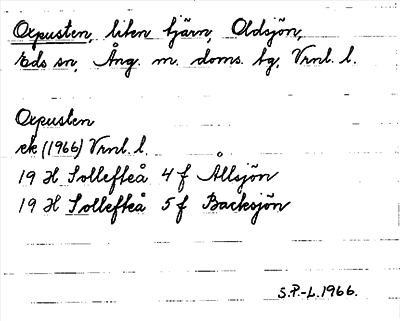 Oxpusten, liten tjärn, Oldsjön,
Eds sn, Ång. m. doms. tg, Vrnl. l.
Oxpusten
ek (1966) Vrnl. l.
19 H Sollefteå 4 f Ållsjön
19 H Sollefteå 5 f Backsjön
S.P.-L. 1966.